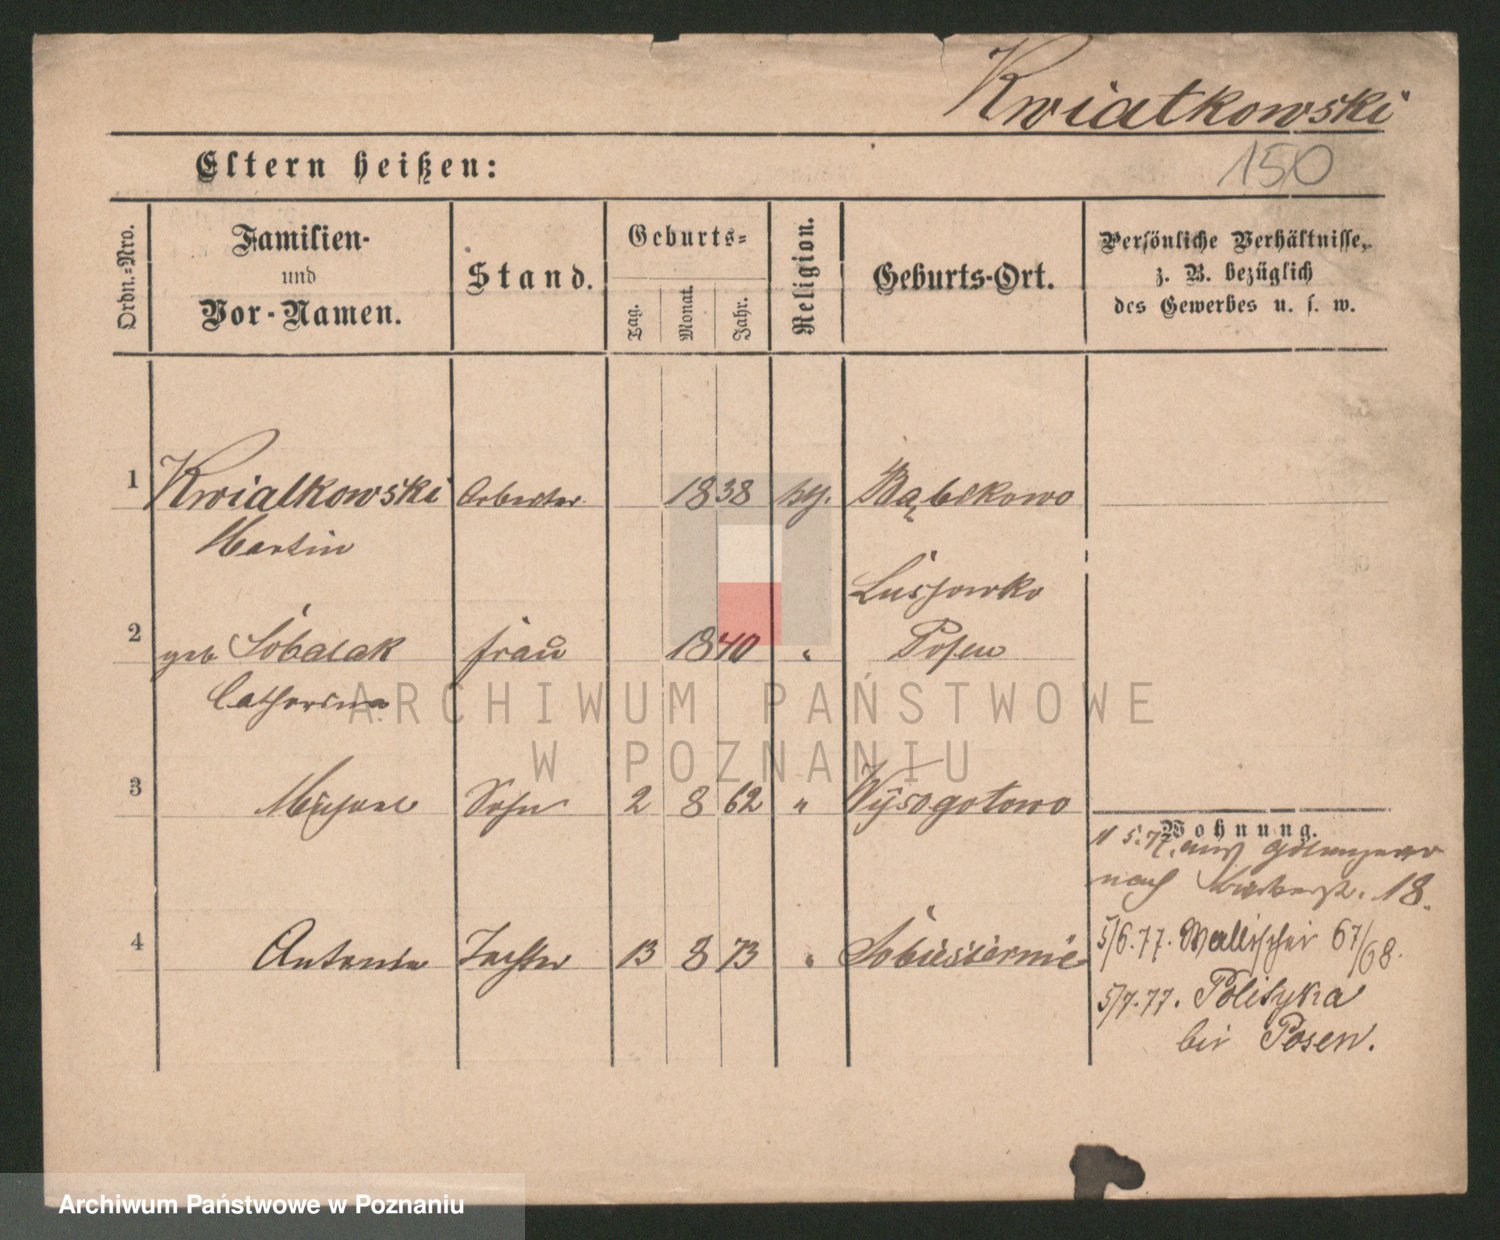 Kwiatkowski
150
Eltern heißen:
Ordn.=Nro.
Familien-
und
Vor-Namen.
Stand.
Geburts=
Tag.
Monat.
Jahr.
Religion.
Geburts-Ort.
Persönliche Verhältnisse,
z. B. bezüglich
des Gewerbes u. s. w.
1 Kwiatkowski Arbeiter 1838 Bąbikowo
Martin
Lussowko
2 geb Sobalak Frau 1840 " Posen
Catharina
3 Michael Sohn 2 8 62 " Wysogotowo
4 Antonie Tochter 13 8 73 " Sobiesiernie
Wohnung.
11 5.77. aus
nach 18.
5/6.77. Wallischei 67/68.
5/7.77. Polityka
bei Posen.
ARCHIWUM PAŃSTWOWE
W POZNANIU
Archiwum Państwowe w Poznaniu